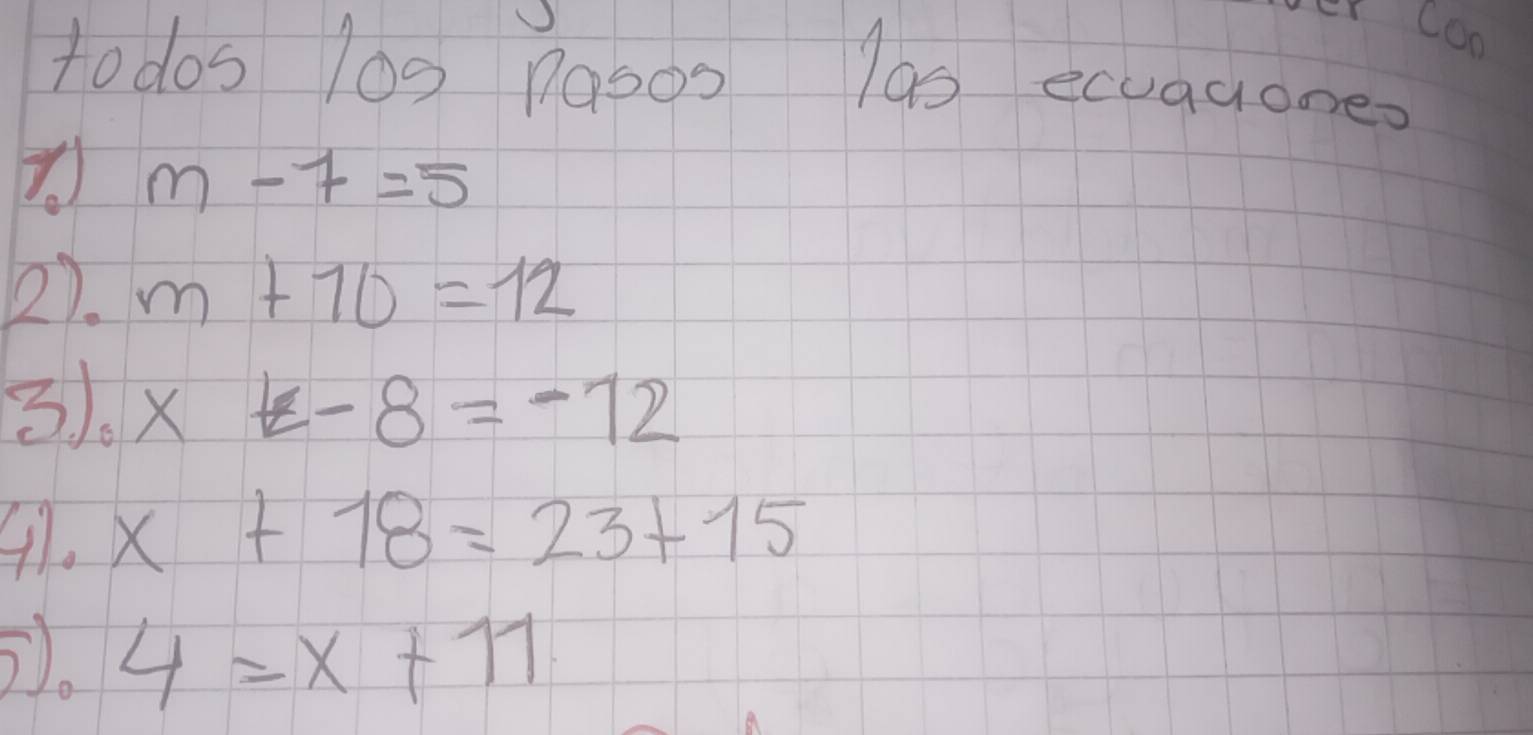 con
todos los pasos las ecuaciones
1.) m - 7 = 5
2). m + 10 = 12
3). x - 8 = -12
4). x + 18 = 23 + 15
5). 4 = x + 11